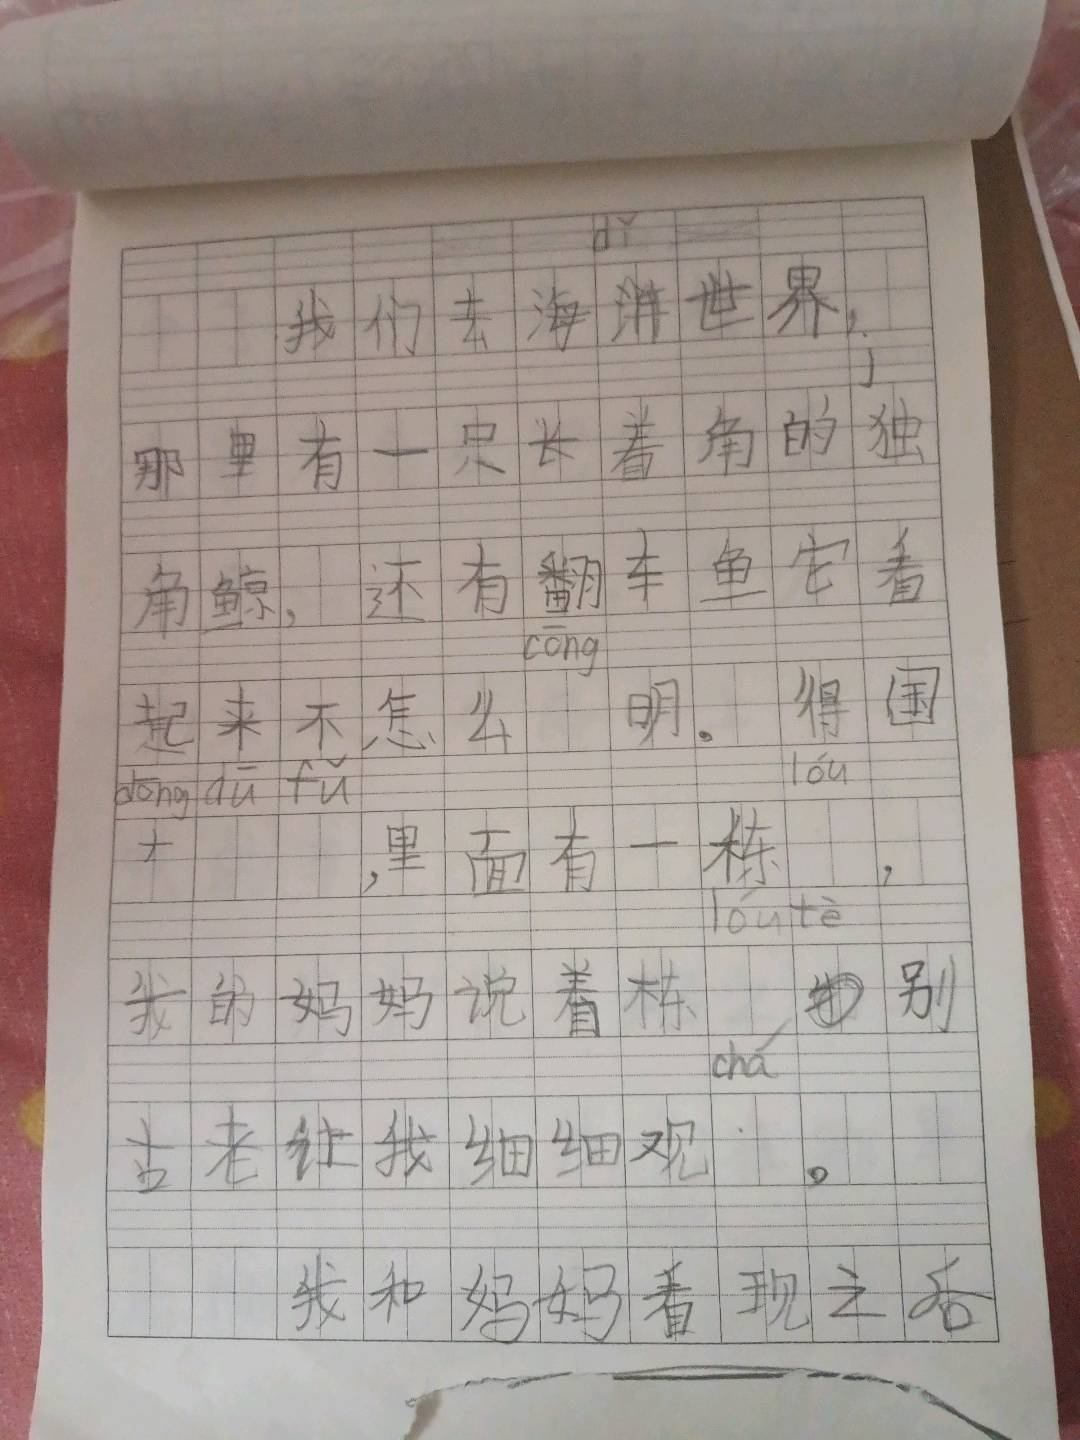 dǐ
我们去海洋世界，
那里有一只长着角的独
角鲸，还有翻车鱼它看
cōng
起来不怎么 明。 得国
dōng dū fǔ lóu
大 ，里面有一栋 ，
lóu tè
我的妈妈说着栋 别
chá
古老让我细细观 。
我和妈妈看现之后